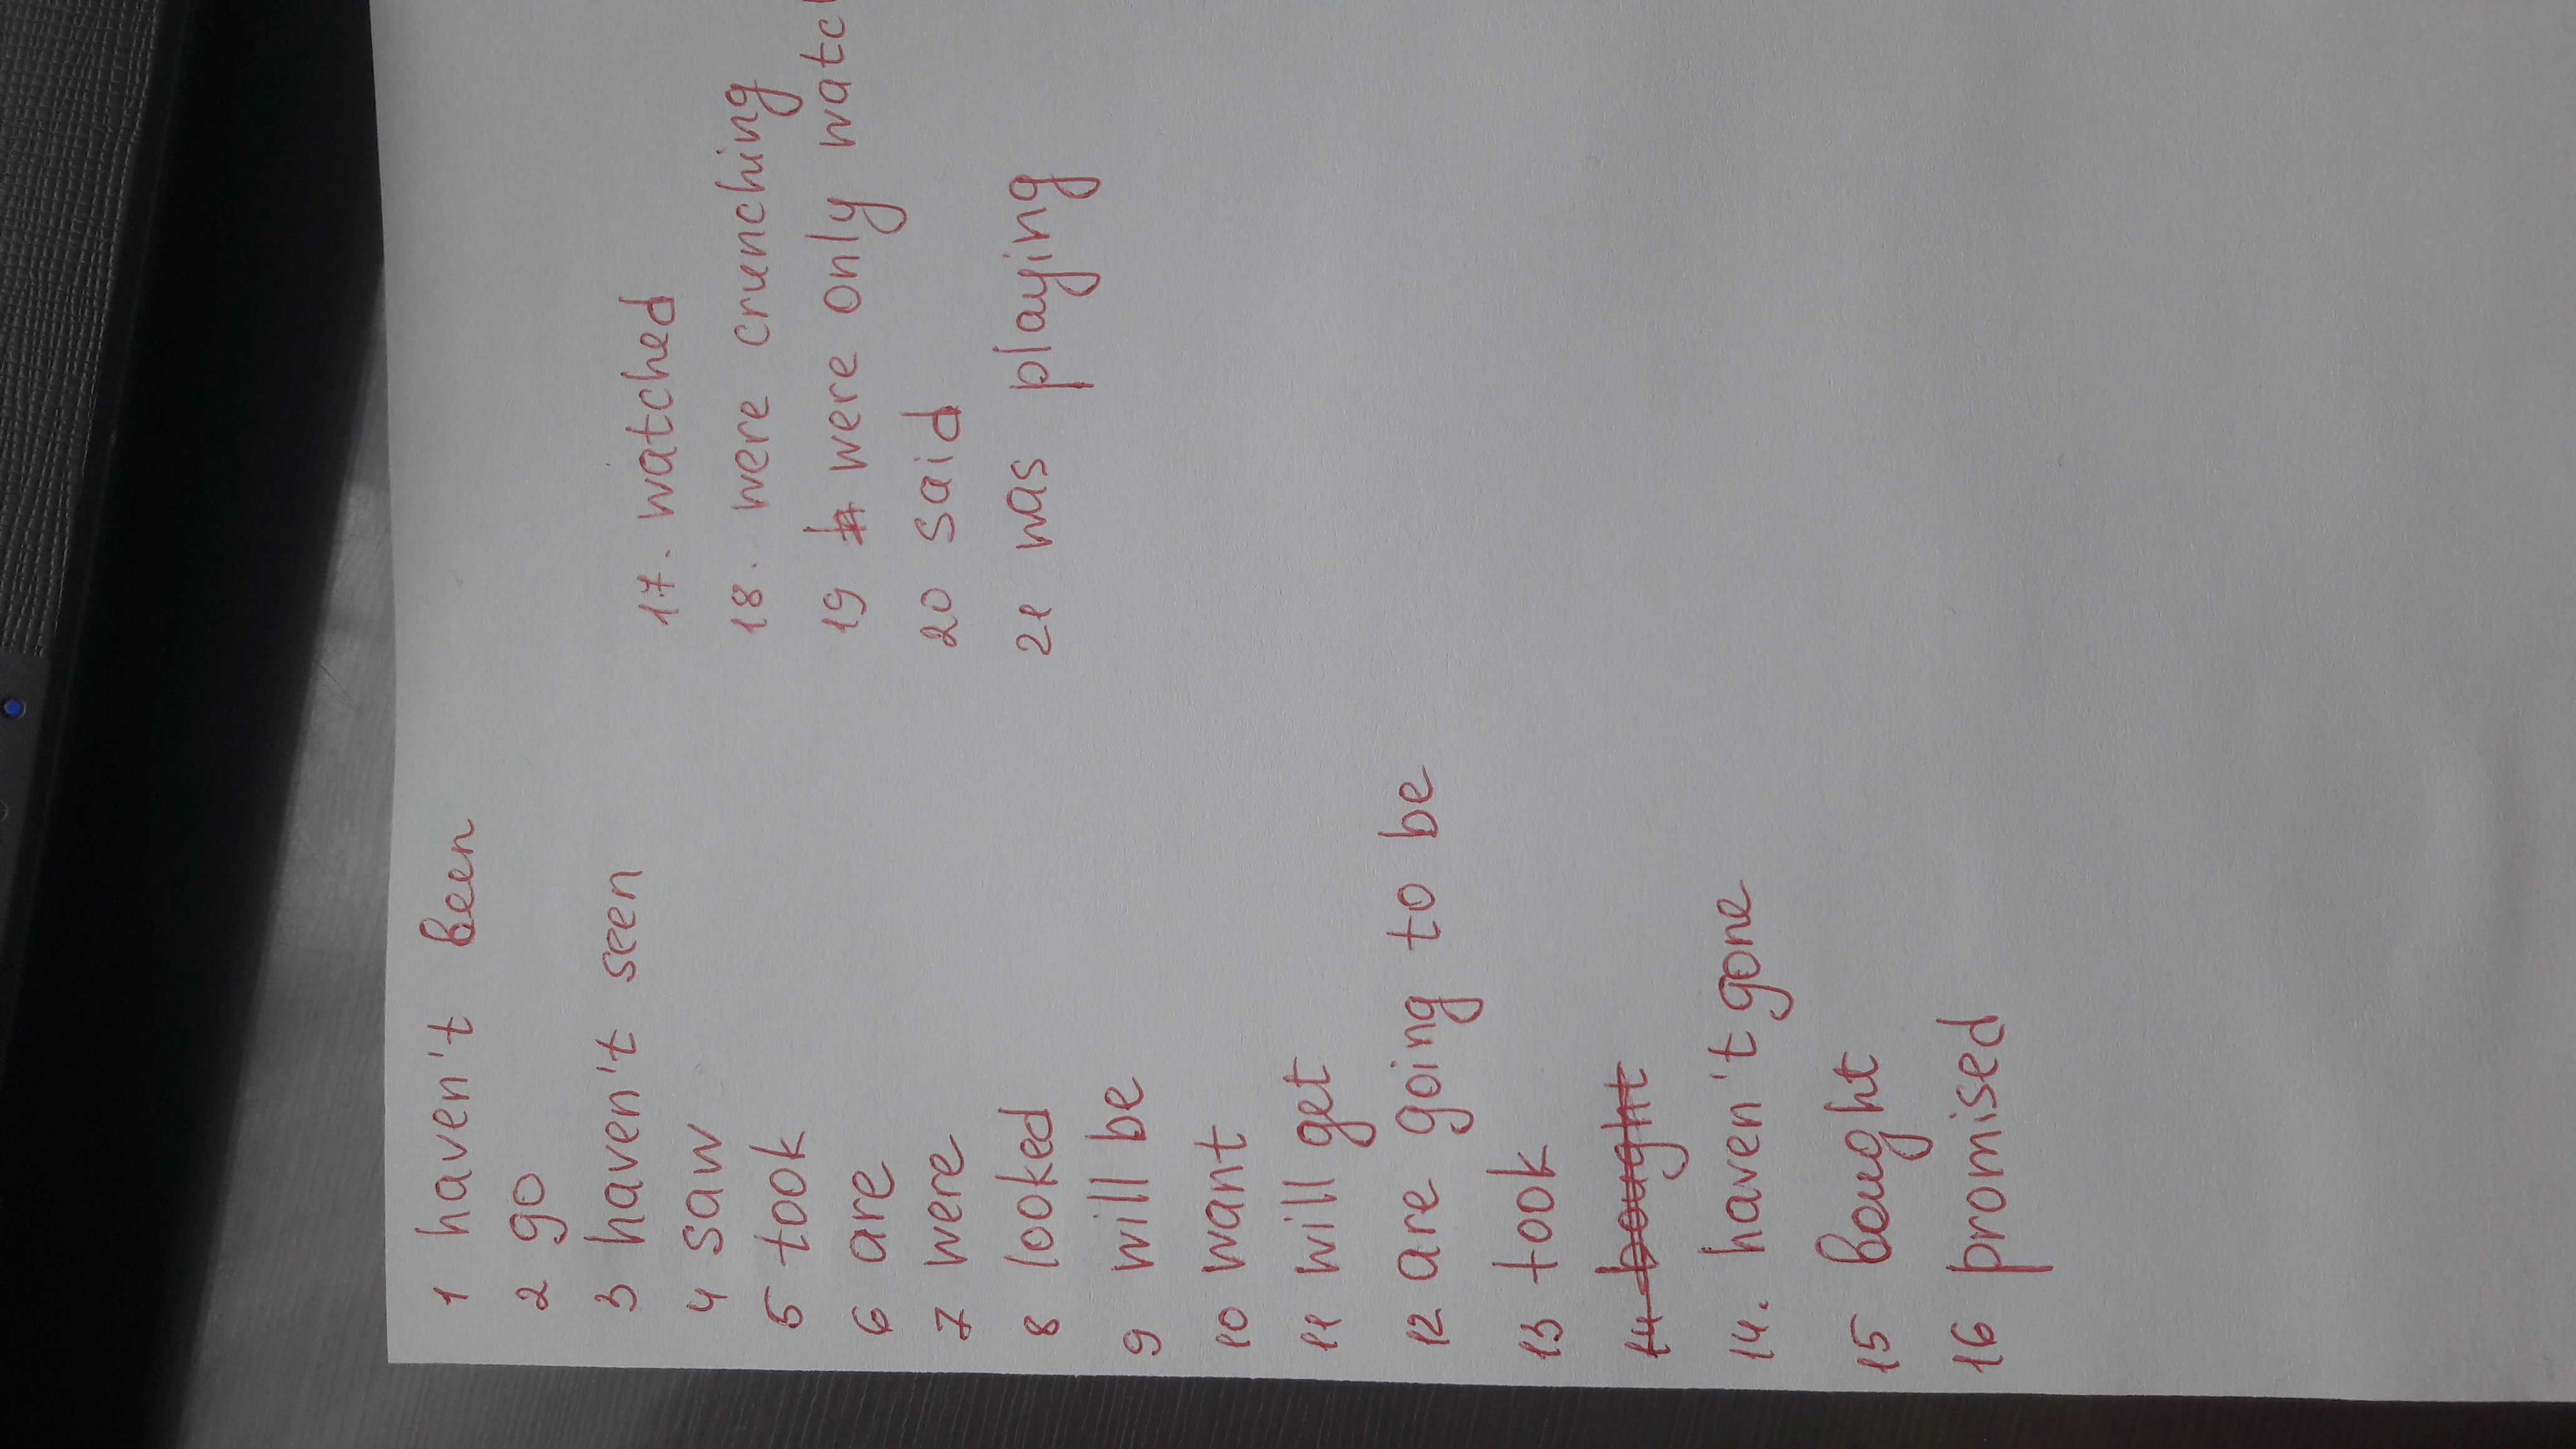 1 haven't been
2 go
3 haven't seen
4 saw
5 took
6 are
7 were
8 looked
9 will be
10 want
11 will get
12 are going to be
13 took
14 bought
14. haven't gone
15 bought
16 promised
17. watched
18. were crunching
19 were only
20 said
21 was playing